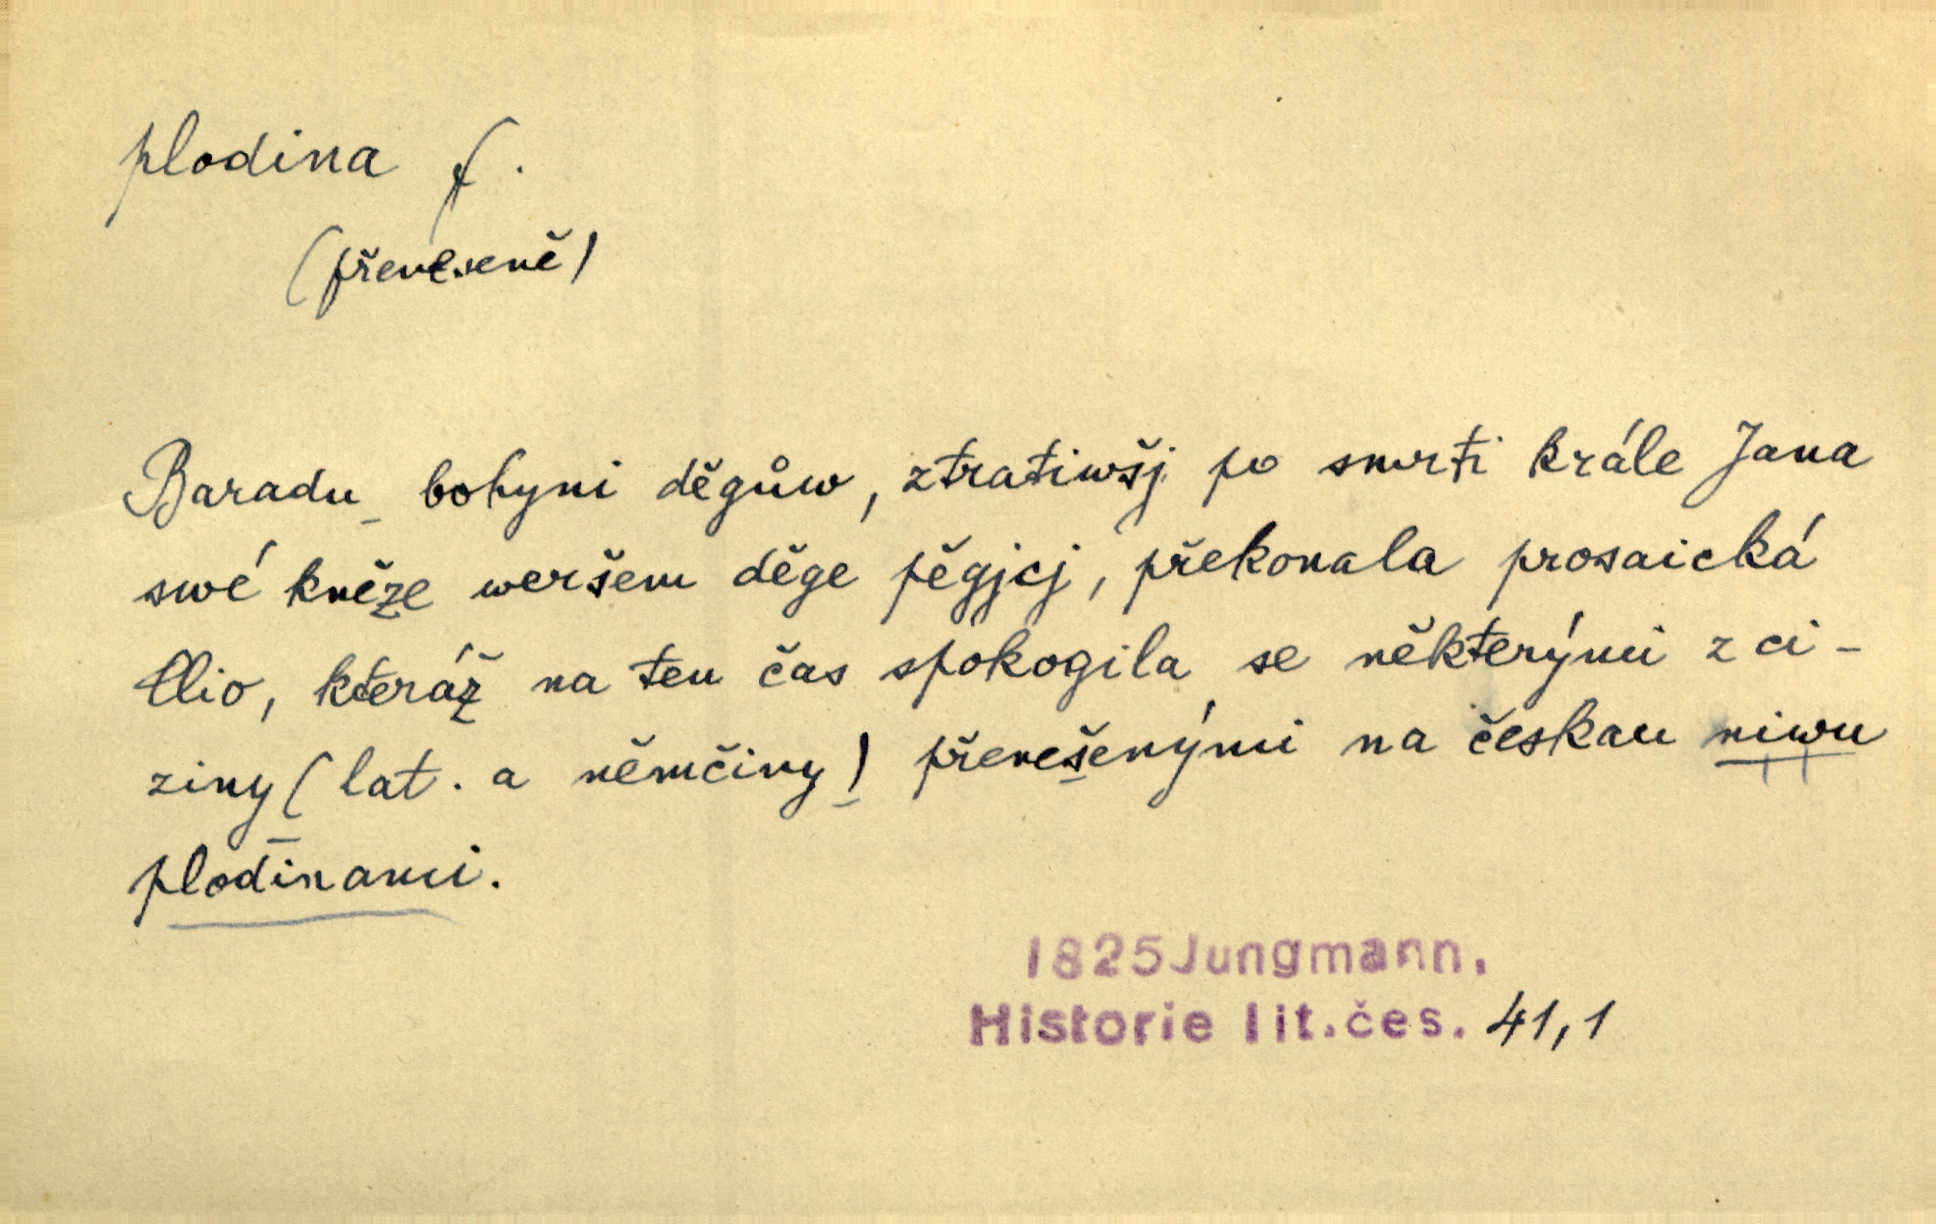 plodina f.
(přeneseně)
Baradu bohyni děgůw, ztratiwšj po smrti krále Jana
swé kněze weršem děge pěgjcj, překonala prosaická
Clio, kteráž na ten čas spokogila se některými z ci-
ziny (lat. a němčiny) přenešenými na českau niwu
plodinami.
1825 Jungmann.
Historie lit. čes. 41,1